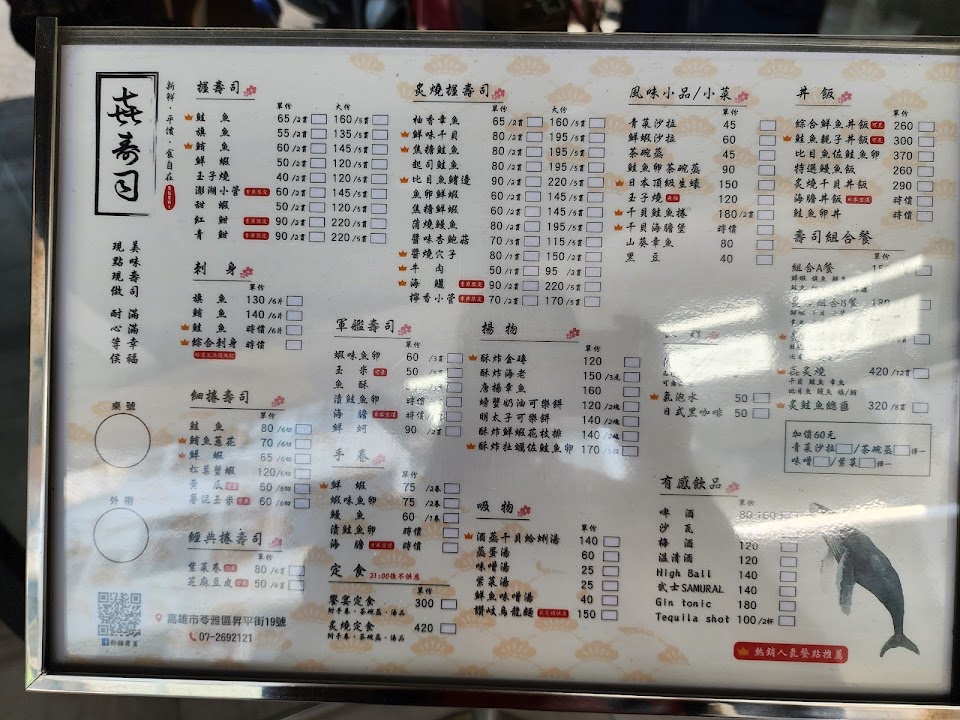 㐂壽司
新鮮.平價.食自在
美味壽司 滿滿幸福
現點現做 耐心等侯
桌號
外帶
高雄市苓雅區昇平街19號
07-2692121
握壽司
單价 大份
鮭魚 65/2貫 160/5貫
旗魚 55/2貫 135/5貫
鮪魚 60/2貫 145/5貫
鮮蝦 50/2貫 120/5貫
玉子燒 40/2貫 120/5貫
澎湖小管 60/2貫 145/5貫
甜蝦 50/2貫 120/5貫
紅魽 90/2貫 220/5貫
青魽 90/2貫 220/5貫
刺身
單份
旗魚 130/6片
鮪魚 140/6片
鮭魚 時價/6片
綜合刺身 時價
細捲壽司
單份
鮭魚 80/6切
鮪魚蔥花 70/6切
鮮蝦 65/6切
松葉蟹蝦 120/6切
黃瓜 60/6切
醬泥玉米 60/6切
經典捲壽司
單份
紫菜卷 80/6貫
芝麻豆皮 50/4貫
炙燒握壽司
單份 大份
柚香章魚 65/2貫 160/5貫
鮮味干貝 80/2貫 195/5貫
焦糖鮭魚 80/2貫 195/5貫
起司鮭魚 80/2貫 195/5貫
比目魚鰭邊 90/2貫 220/5貫
魚卵鮮蝦 60/2貫 145/5貫
焦糖鮮蝦 60/2貫 145/5貫
蒲燒鰻魚 80/2貫 195/5貫
醬味杏鮑菇 70/3貫 115/5貫
醬燒穴子 80/1貫 150/2貫
牛肉 50/1貫 95/2貫
海鱺 90/2貫 220/5貫
檸香小管 70/2貫 170/5貫
軍艦壽司
單份
蝦味魚卵 60/3貫
玉米 50
魚酥
漬鮭魚卵 時價
海膽 時價
鮮蚵 90/2貫
手卷
單份
鮮蝦 75/2卷
蝦味魚卵 75/2卷
鰻魚 60/1卷
漬鮭魚卵 時價
海膽 時價
定食 21:00後不供應
單份
饗宴定食 300
附手卷、茶碗蒸、湯品
炙燒定食 420
附手卷、茶碗蒸、湯品
揚物
單份
酥炸金磚 120
酥炸海老 150/3尾
唐揚章魚 160
螃蟹奶油可樂餅 120/2塊
明太子可樂餅 140/2塊
酥炸鮮蝦花枝排 140/2塊
酥炸牡蠣佐鮭魚卵 170
吸物
單份
酒蒸干貝蛤蜊湯 140
蒸蛋湯 60
味噌湯 25
紫菜湯 25
鮮魚味噌湯 40
讚岐烏龍麵 150
風味小品/小菜
單份
青菜沙拉 45
鮮蝦沙拉 60
茶碗蒸 45
鮭魚卵茶碗蒸 90
日本頂級生蠔 150
玉子燒 120
干貝鮭魚捲 180/2貫
干貝海膽堡 時價
山葵章魚 80
黑豆 40
氣泡水 50
日式黑咖啡 50
有感飲品
單份
啤酒 80.160
沙瓦
梅酒 120
溫清酒 120
High Ball 140
武士SAMURAI 140
Gin tonic 180
Tequila shot 100/2杯
丼飯
單份
綜合鮮魚丼飯 260
鮭魚親子丼飯 300
比目魚佐鮭魚卵 370
特選鰻魚飯 260
炙燒干貝丼飯 290
海膽丼飯 時價
鮭魚卵丼 時價
壽司組合餐
單份
組合A餐
組合B餐 180
㐂炙燒 420/12貫
炙鮭魚總匯 320/8貫
加價60元
青菜沙拉/茶碗蒸擇一
味噌/紫菜擇一
熱銷人氣餐點推薦